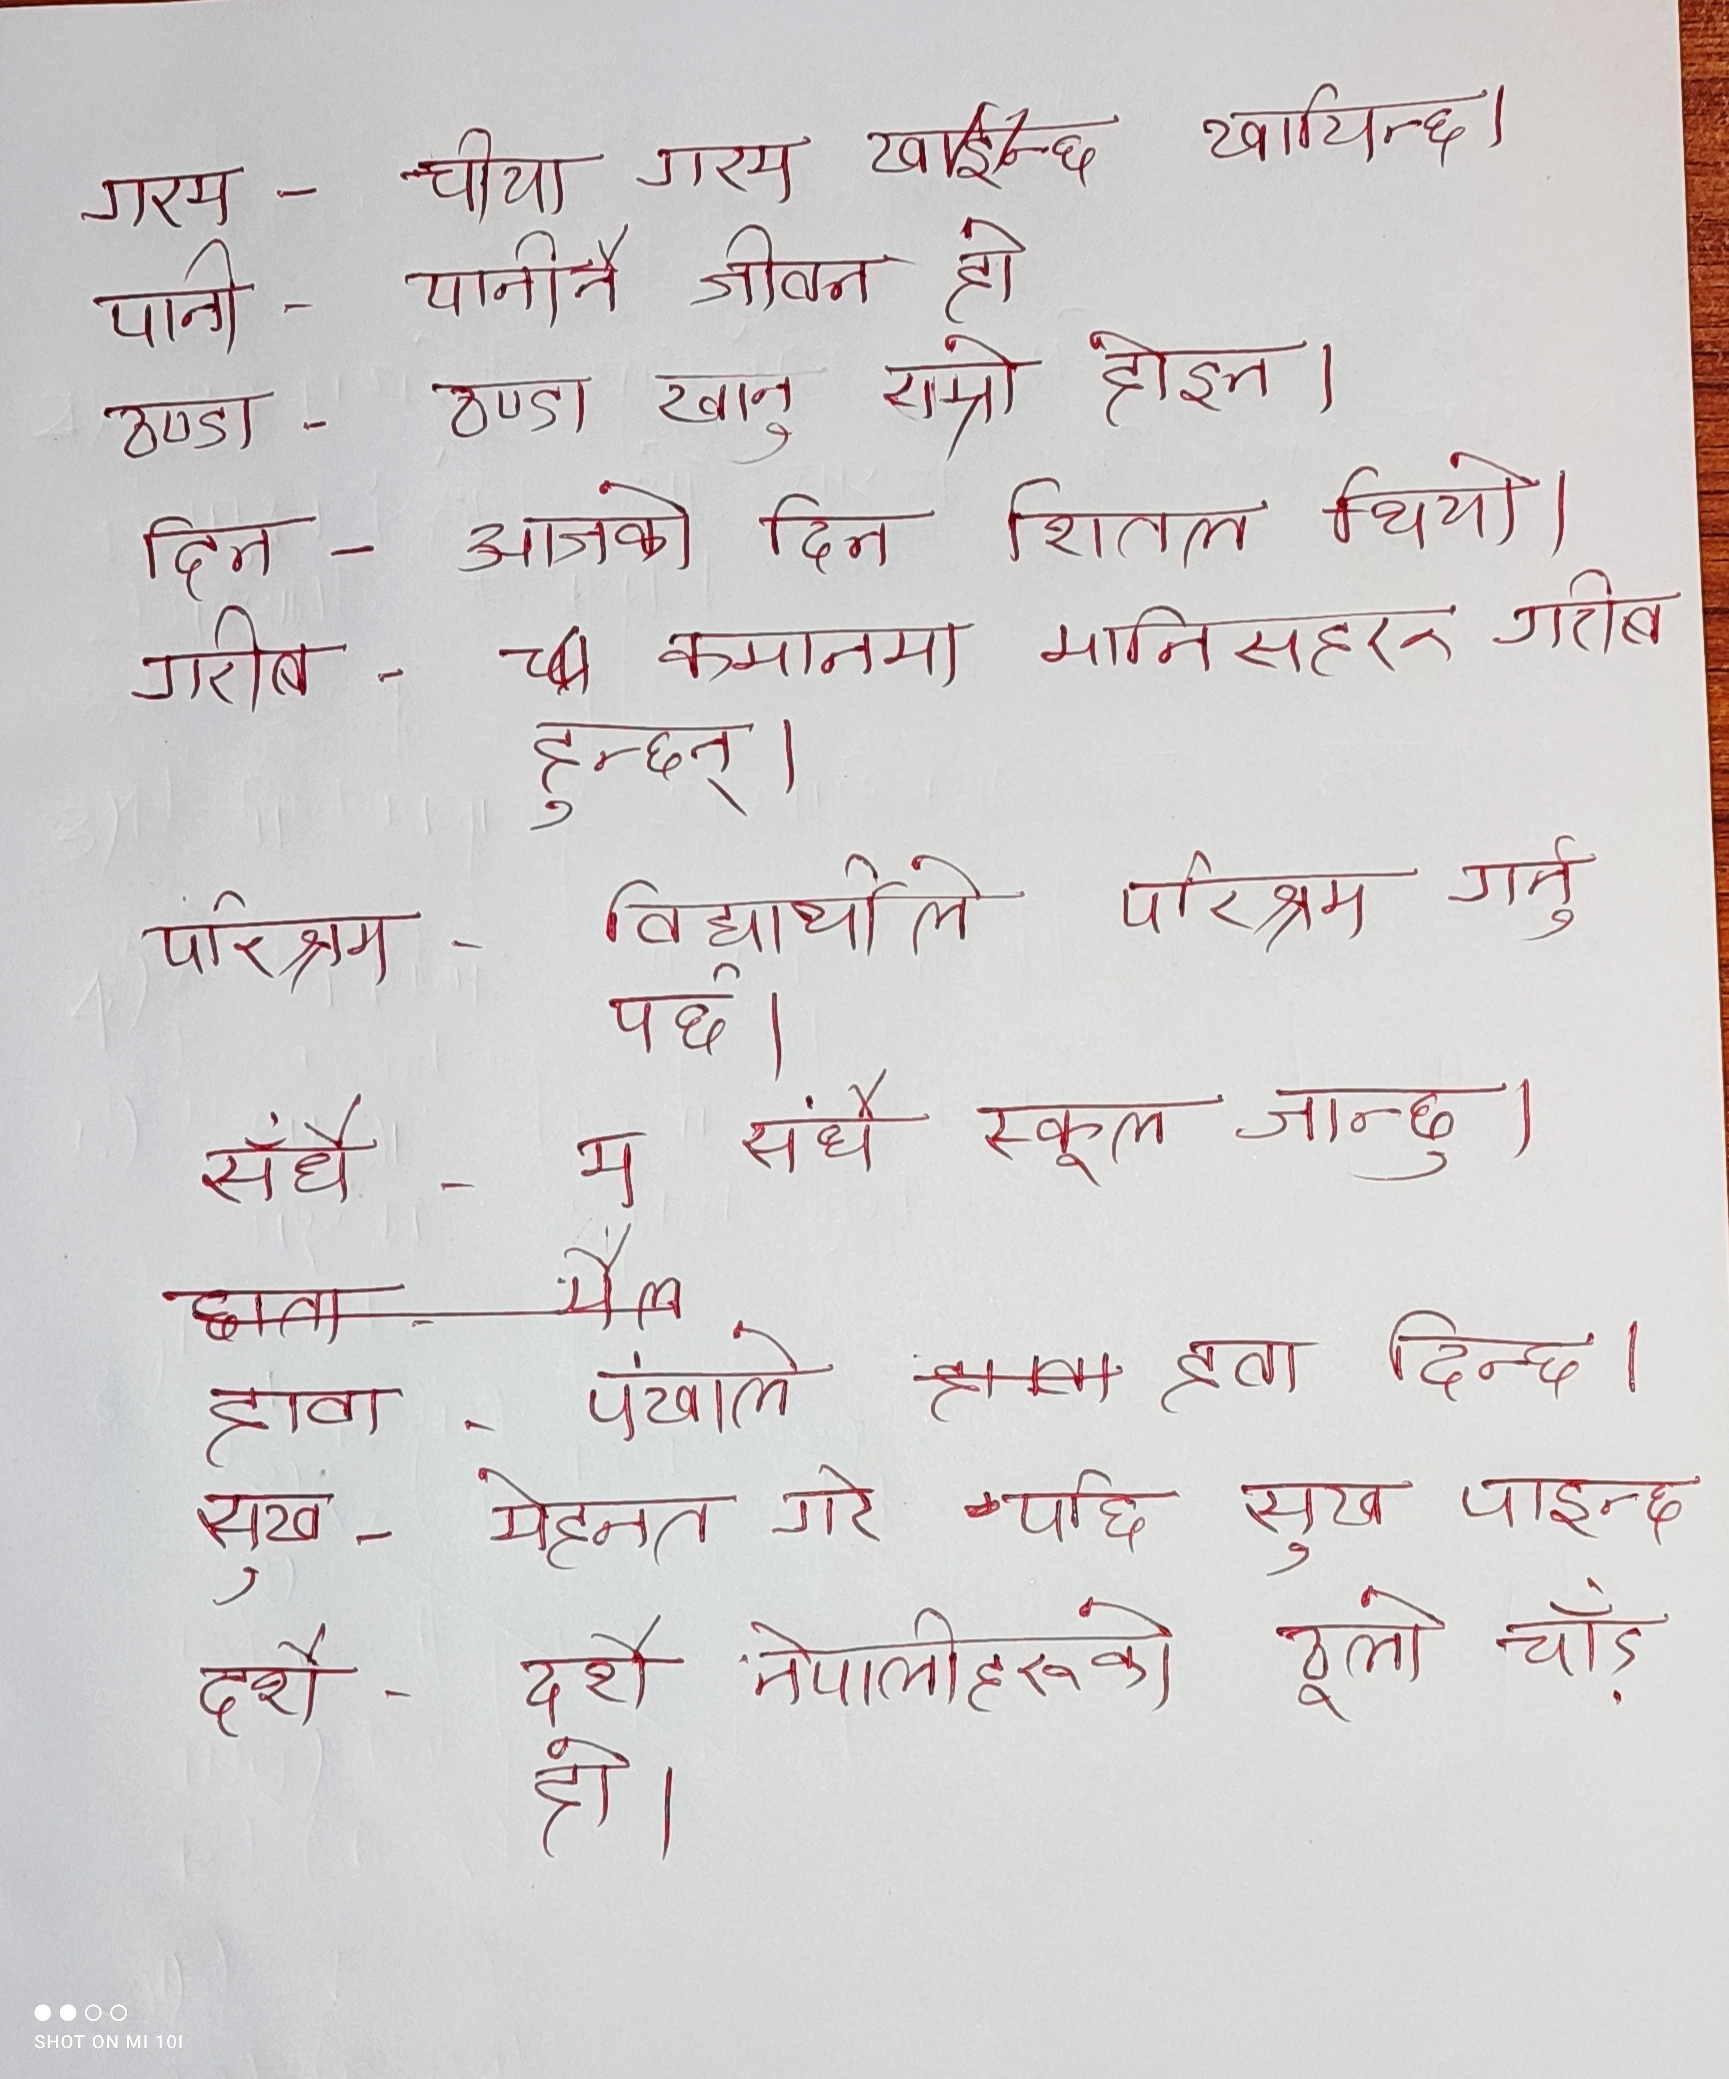 गरम - चीया गरम खाइन्छ खायिन्छ।
पानी - पानीनै जीवन हो
ठण्डा - ठण्डा खानु राम्रो होइन।
दिन - आजको दिन शितल थियो।
गरीब - कमानमा मानिसहरू गरीब
हुन्छन्।
परिश्रम - विद्यार्थीले परिश्रम गर्नु
पर्छ।
सँधै - म संधै स्कूल जान्छु।
छाता - मैल
हावा - पंखाले हावा हवा दिन्छ।
सुख - मेहनत गरे पछि सुख पाइन्छ
दशैं - दशैं नेपालीहरूको ठूलो चाँड़
हो।
SHOT ON MI 10I